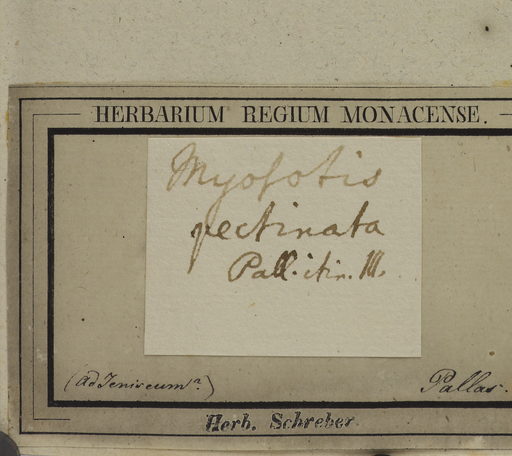 HERBARIUM REGIUM MONACENSE.
Myosotis
pectinata
Pall. itin. III.
(Ad Jeniseum?)
Pallas.
Herb. Schreber